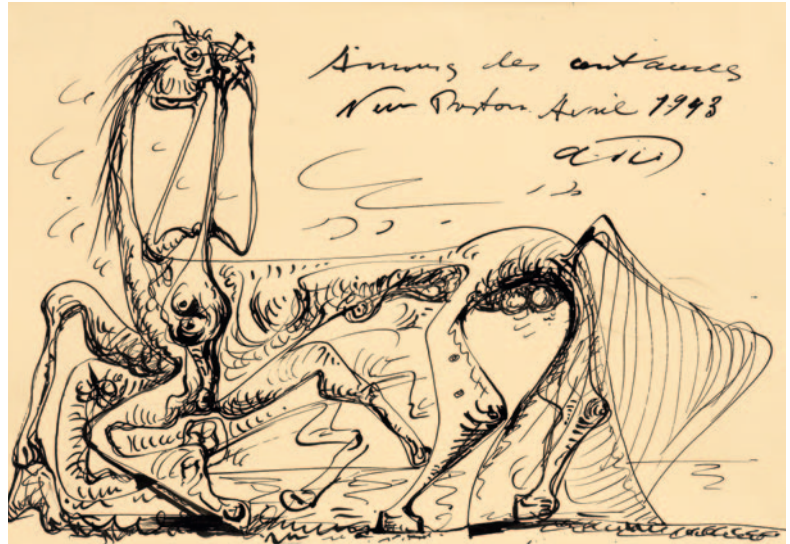 Amours des centaures
New Preston. Avril 1943